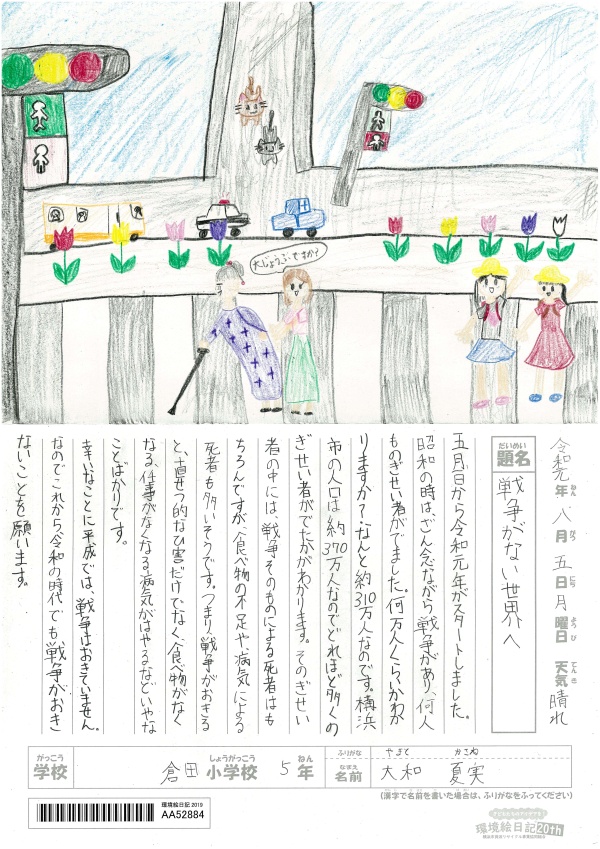 大じょうぶですか?
令和元年ねん八月がつ五日にち月曜日ようび天気てんき晴れ
だいめい
題名
戦争がない世界へ
五月一日から令和元年がスタートしました。
昭和の時は、ざん念ながら戦争があり、何人
ものぎせい者がでました。何万人くらいかわか
りますか?なんと約310万人なのです。横浜
市の人口は約370万人なのでどれほど多くの
ぎせい者がでたかがわかります。そのぎせい
者の中には、戦争そのものによる死者はも
ちろんですが、食べ物の不足や、病気による
死者も多いそうです。つまり、戦争がおきる
と、直せつ的なひ害だけでなく、食べ物がなく
なる、仕事がなくなる、病気がはやるなどいやな
ことばかりです。
幸いなことに平成では、戦争はおきていません。
なのでこれから令和の時代でも戦争がおき
ないことを願います。
がっこう
学校
倉田
しょうがっこう
小学校
5
ねん
年
ふりがな
なまえ
名前
やまと かさね
大和 夏実
(漢字で名前を書いた場合は、ふりがなをふってください)
環境絵日記2019
AA52884
環境絵日記20th